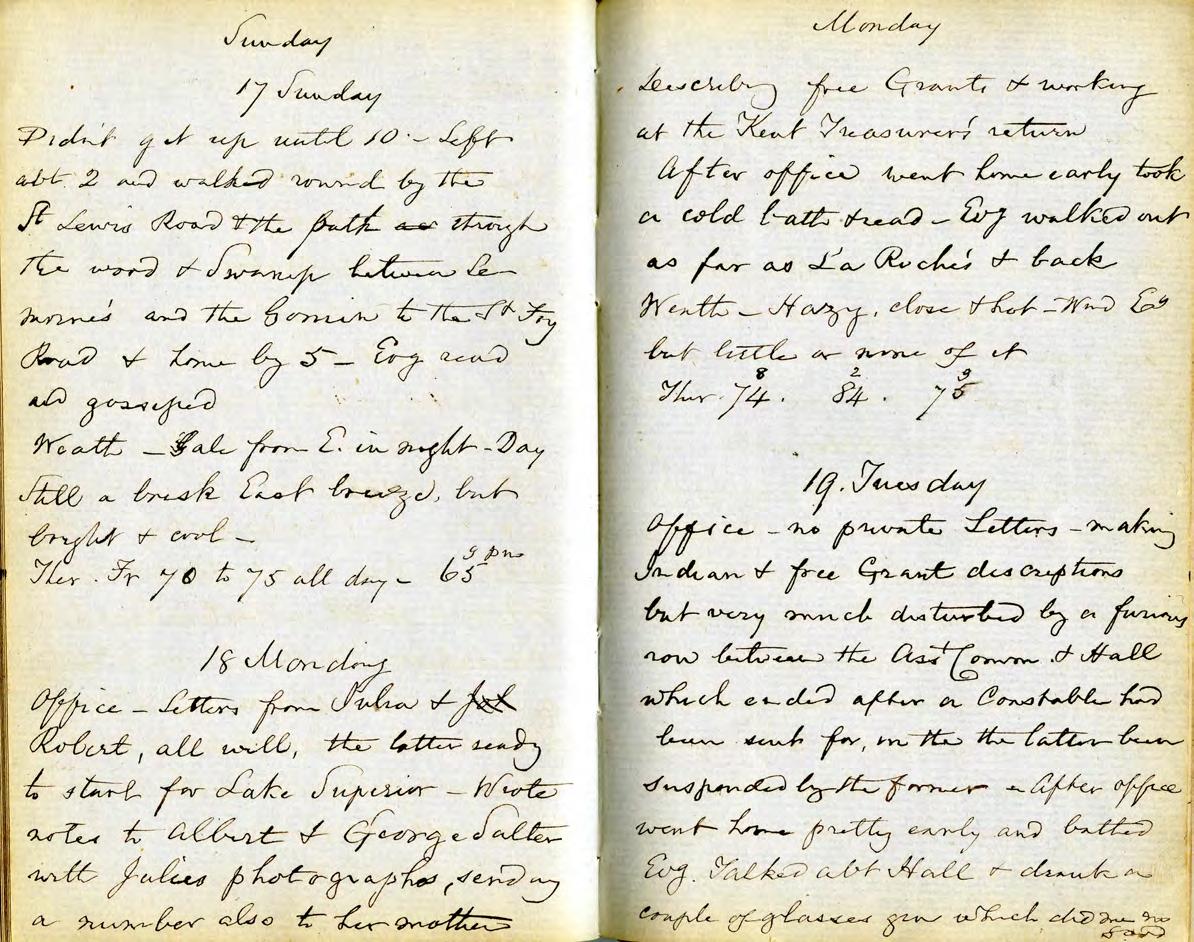 Sunday
17 Sunday
Didn't get up until 10 - Left
abt. 2 and walked round by the
St Lewis Road & the path as through
the wood & Swamp between Le
moine's and the Gomin to the St Foy
Road & home by 5 - Evg read
and gossiped
Weath - Gale from E. in night - Day
Still a brisk East breeze, but
bright & cool -
Ther. Fr 70 to 75 all day - 65 9 pm
18 Monday
Office - Letters from Julia &
Robert, all will, the latter ready
to start for Lake Superior - Wrote
notes to Albert & George Salter
with Julies photographs, sending
a number also to her mother
Monday
Describing free Grants & working
at the Kent Treasurer's return
After office went home early took
a cold bath & read - Evg walked out
as far as La Roche's & back
Weath - Hazy, close & hot - Wnd
but little or none of it
Ther. 74 8. 84 2. 75 9
19. Tuesday
Office - no private Letters - making
Indian & free Grant descriptions
but very much disturbed by a furious
row between the Asst Common. & Hall
which ended after a Constable had
been sent for, in the the latter been
suspended by the former - After office
went home pretty early and bathed
Evg. Talked abt Hall & drank a
couple of glasses gin which did me no
good